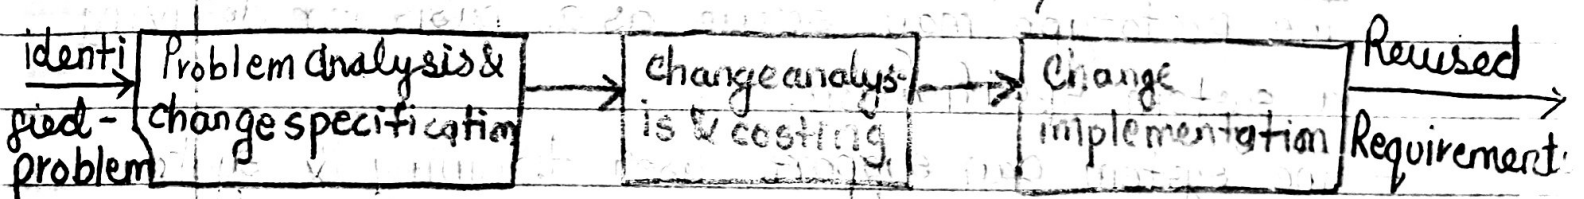 identi
fied-
problem
Problem analysis &
change specification
change analys-
is & costing
Change
implementation
Revised
Requirement.